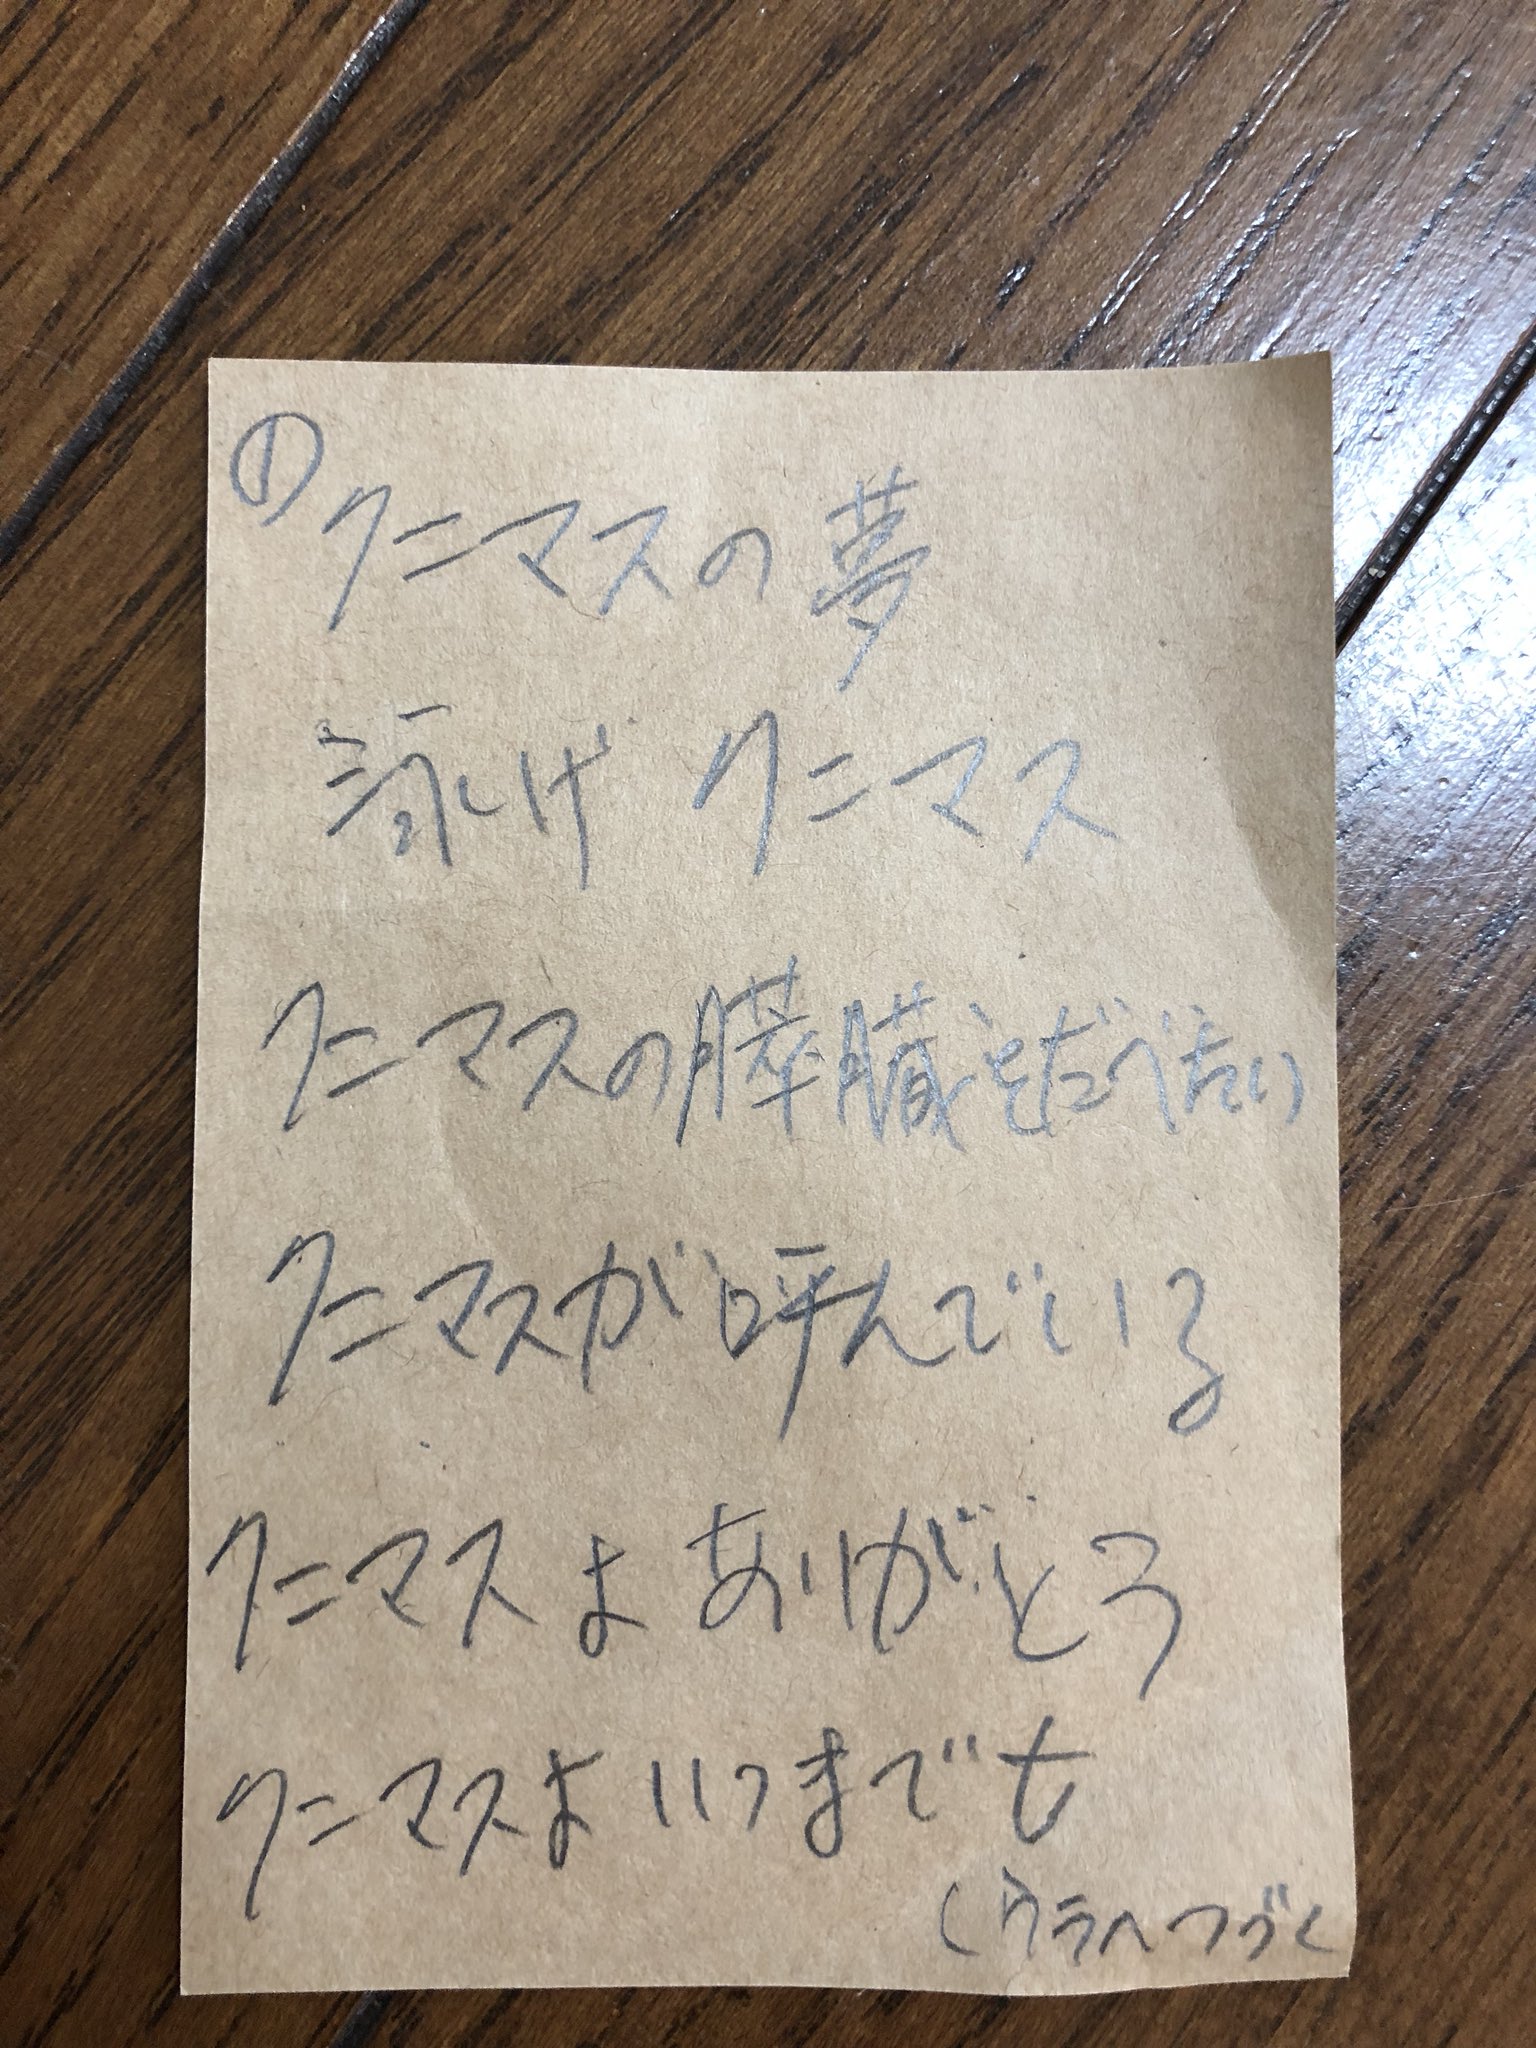 ①
クニマスの夢
泳げ クニマス
クニマスの膵臓をたべたい
クニマスが呼んでいる
クニマスよ ありがとう
クニマスよ いつまでも
(ウラへつづく